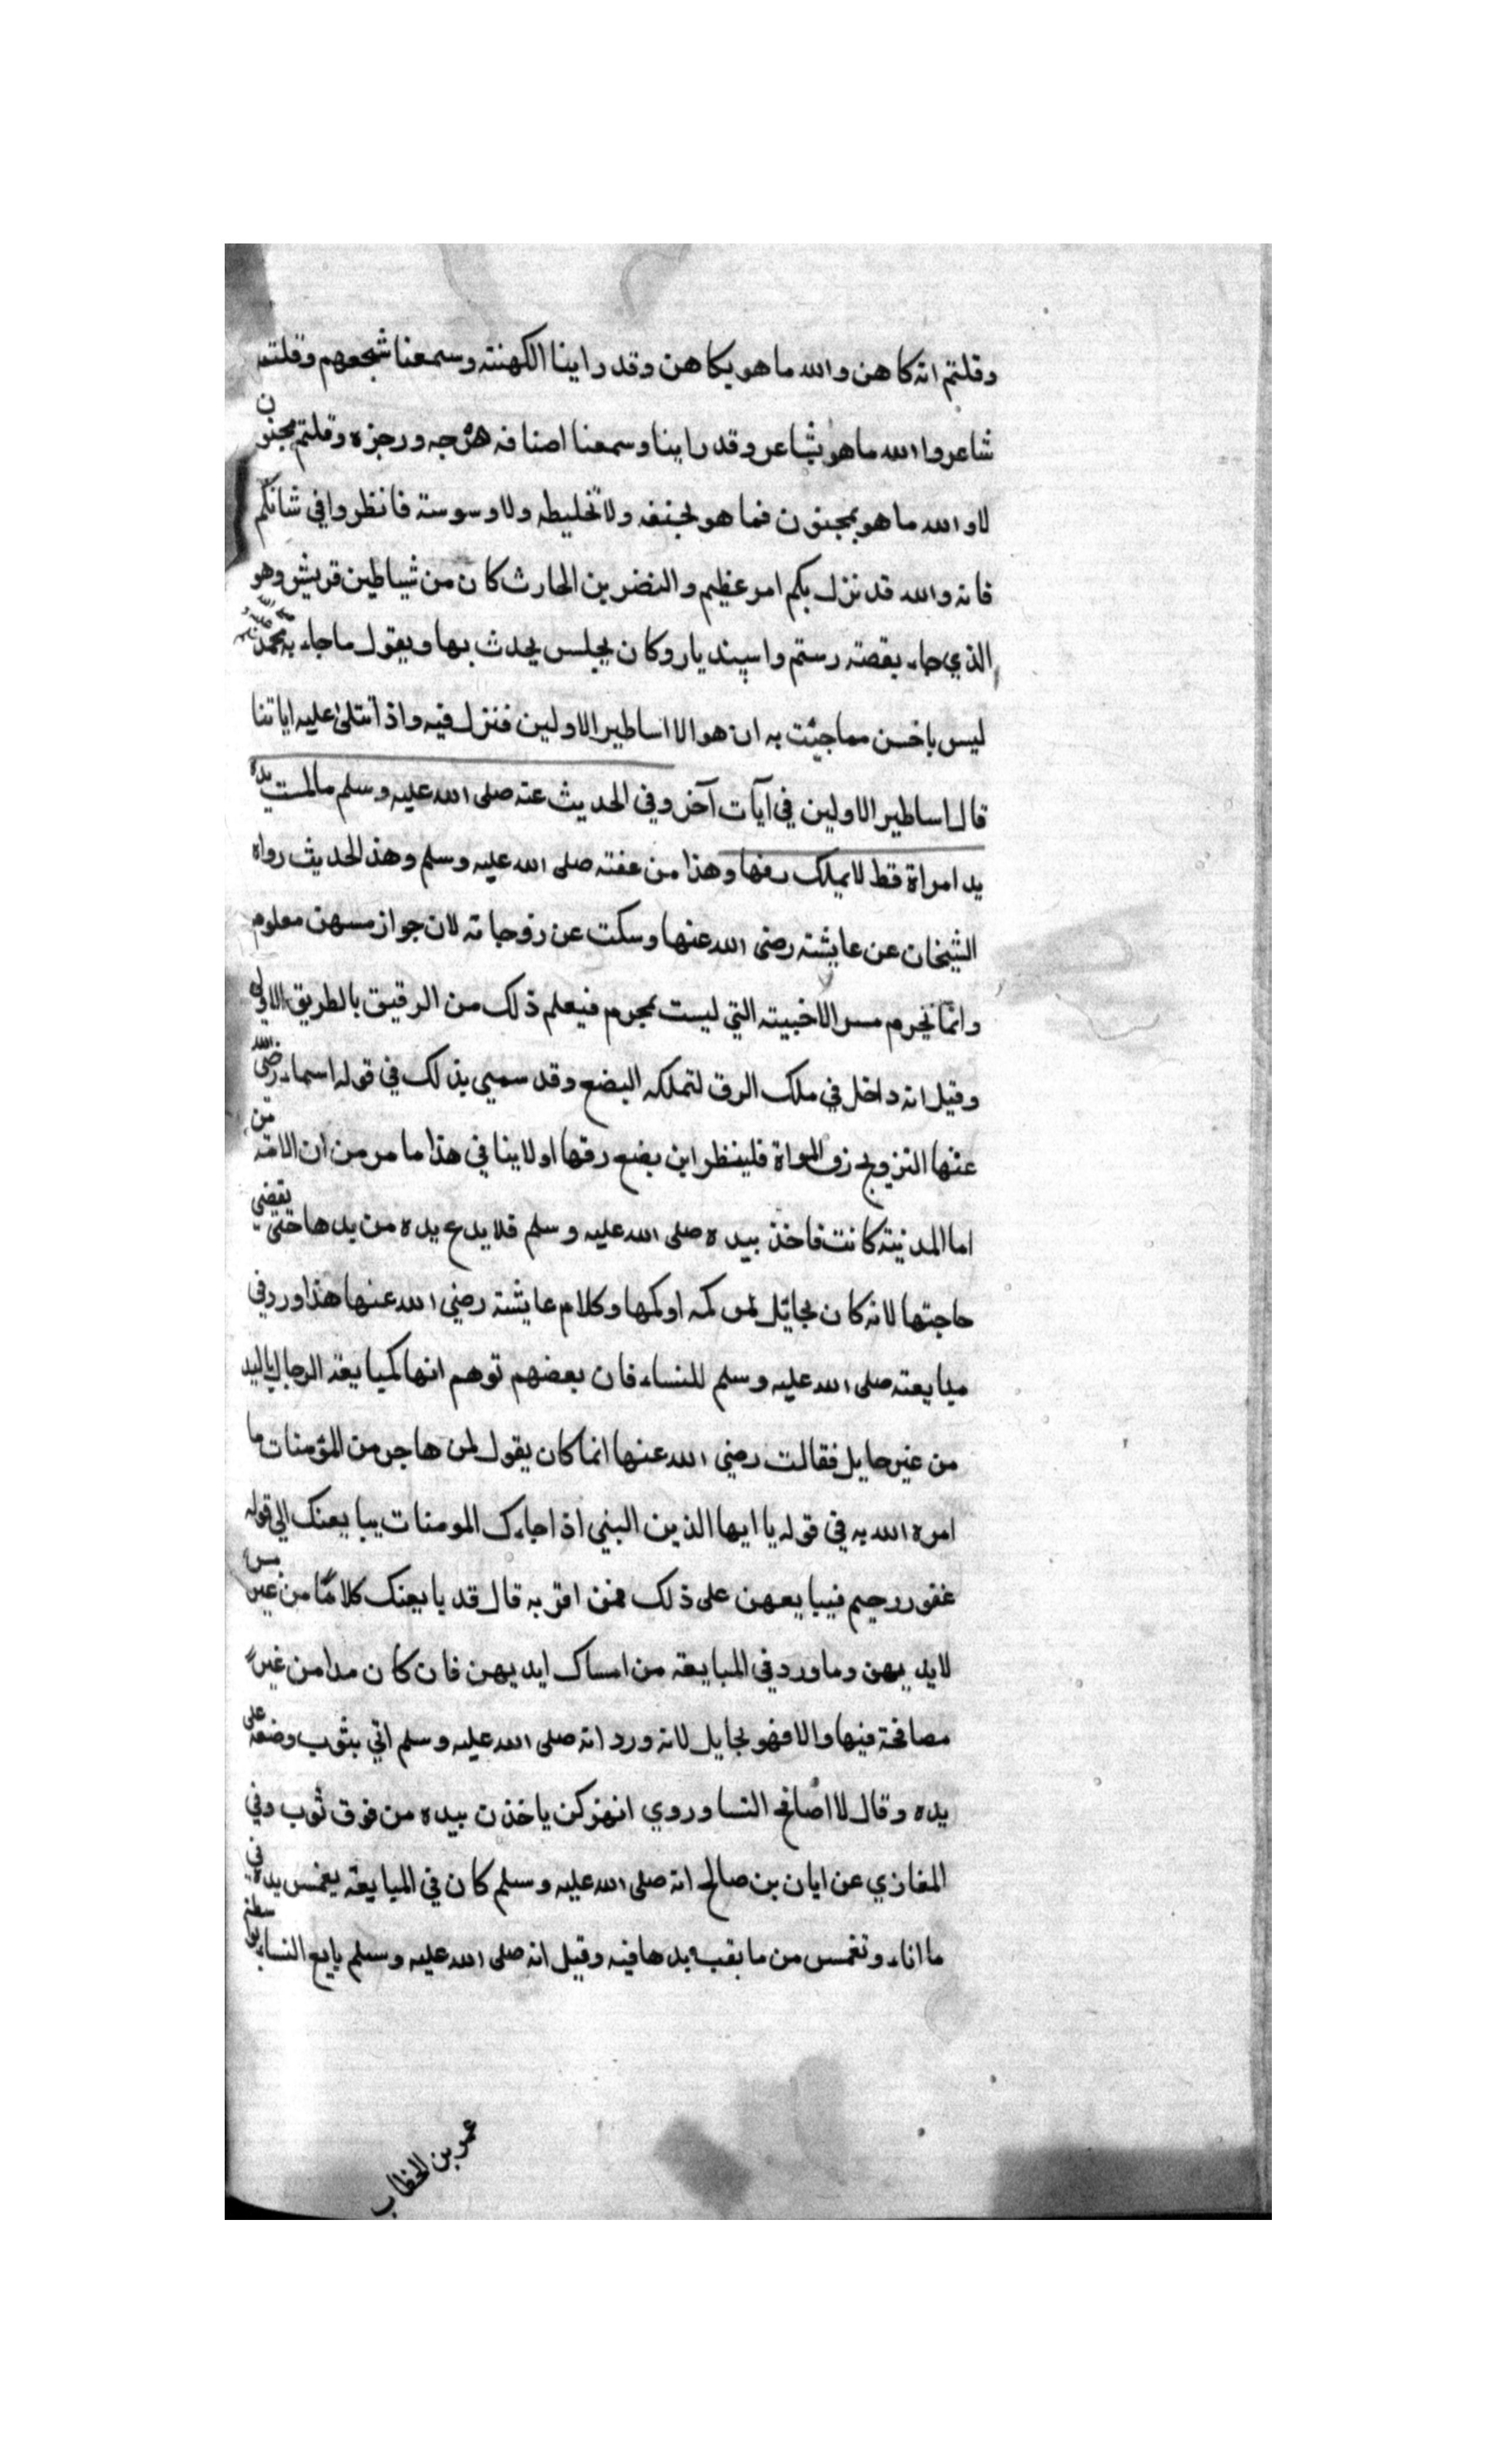 وقلتم انه كاهن والله ما هو بكاهن وقد راينا الكهنته وسمعنا شجعهم وقلتم
شاعر والله ما هو بشاعر وقد راينا وسمعنا اصنافه هزجه ورجزه وقلتم مجنون
لا والله ما هو بمجنون فما هو بخنقه ولا تخليطه ولا وسوسته فانظروا في شانكم
فانه والله قد نزل بكم امر عظيم والنضر بن الحارث كان من شياطين قريش وهو
الذي جاء بقصته رستم واسپنديار وكان يجلس يحدث بها ويقول ما جاء به محمد صلى الله عليه و
ليس باحسن مما جيئت به ان هو الا اساطير الاولين فنزل فيه واذا تتلى عليه اياتنا
قال اساطير الاولين في آيات آخر وفي الحديث عنه صلى الله عليه وسلم ما لمست يده
يد امراة قط لا يملك رقها وهذا من عفته صلى الله عليه وسلم وهذ الحديث رواه
الشيخان عن عايشته رضي الله عنها وسكت عن زوجاته لان جواز مسهن معلوم
وانما يحرم مس الاخبيته التي ليست بمحرم فيعلم ذلك من الرقيق بالطريق الاولى
وقيل انه داخل في ملك الرق لتملكه البضع وقد سمي بذلك في قوله اسماء رضي الله
عنها التزويج رق المراة فلينظر اين يضع رقها او لا ينا في هذا ما مر من ان الامته من
اما المدنيته كانت فاخذ بيده صلى الله عليه وسلم فلا يدع يده من يدها حتى يقضي
حاجتها لانه كان بحايل كمه او كمها وكلام عايشته رضي الله عنها هذا ورد في
مبايعته صلى الله عليه وسلم للنساء فان بعضهم توهم انها كمبايعة الرجال باليد
من غير حايل فقالت رضي الله عنها انما كان يقول لمن هاجر من المؤمنات ما
امره الله به في قوله يا ايها الذين النبي اذا جاءك المومنات يبايعنك الى قوله
غفور رحيم فيبايعهن على ذلك فمن اقر به قال قد بايعتك كلامًا من غير مس
لايديهن وما ورد في المبايعته من امساك ايديهن فان كان مدا من غير
مصافحة فيها والا فهو بحايل لانه ورد انه صلى الله عليه وسلم اتي بثوب وضعه على
يده وقال لا اصافح النسا وروي انهن كن ياخذن بيده من فوق ثوب وفي
المغازي عن ايان بن صالح انه صلى الله عليه وسلم كان في المبايعته يغمس يده في
ما اناء وتغمس من يدها فيه وقيل انه صلى الله عليه وسلم بايع النساء بواسطته
عمر بن الخطاب